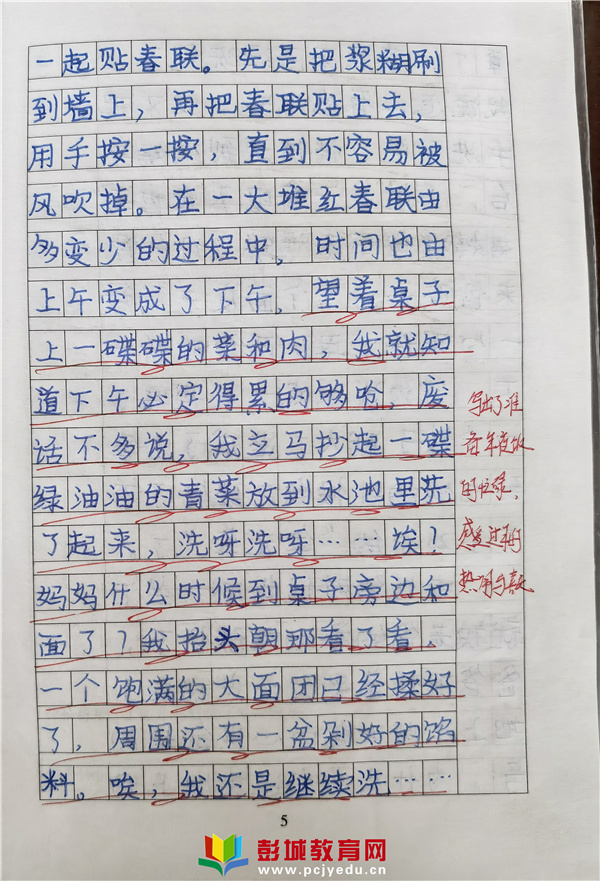 一起贴春联。先是把浆糊刷
到墙上，再把春联贴上去，
用手按一按，直到不容易被
风吹掉。在一大堆红春联由
多变少的过程中。时间也由
上午变成了下午。望着桌子
上一碟碟的菜和肉，我就知
道下午必定得累的够呛，废
话不多说，我立马抄起一碟
绿油油的青菜放到水池里洗
了起来，洗呀洗呀……埃？
妈妈什么时候到桌子旁边和
面了？我抬头朝那看了看，
一个饱满的大面团已经揉好
了，周围还有一盆剁好的馅
料。唉，我还是继续洗……
写出了准
备年夜饭
的忙碌，
感受过年的
热闹与喜庆
5
彭城教育网
www.pcjyedu.cn